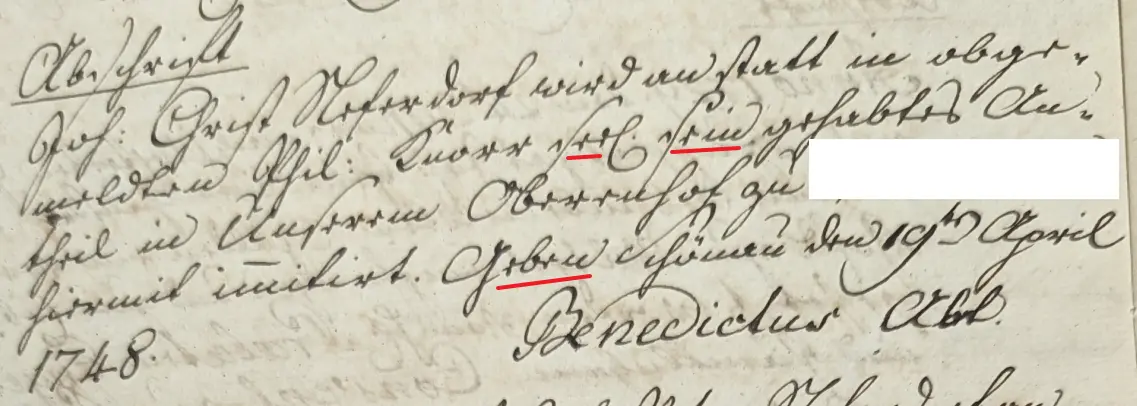 Abschrifft
Joh: Christ Neferdorf wird an statt in obge-
meldten Phil: Knorr seel. sein gehabtes An-
theil in Unserem Oberenhof zu
hiermit immitirt. Geben Schönau den 19ten April
1748. Benedictus Abt.